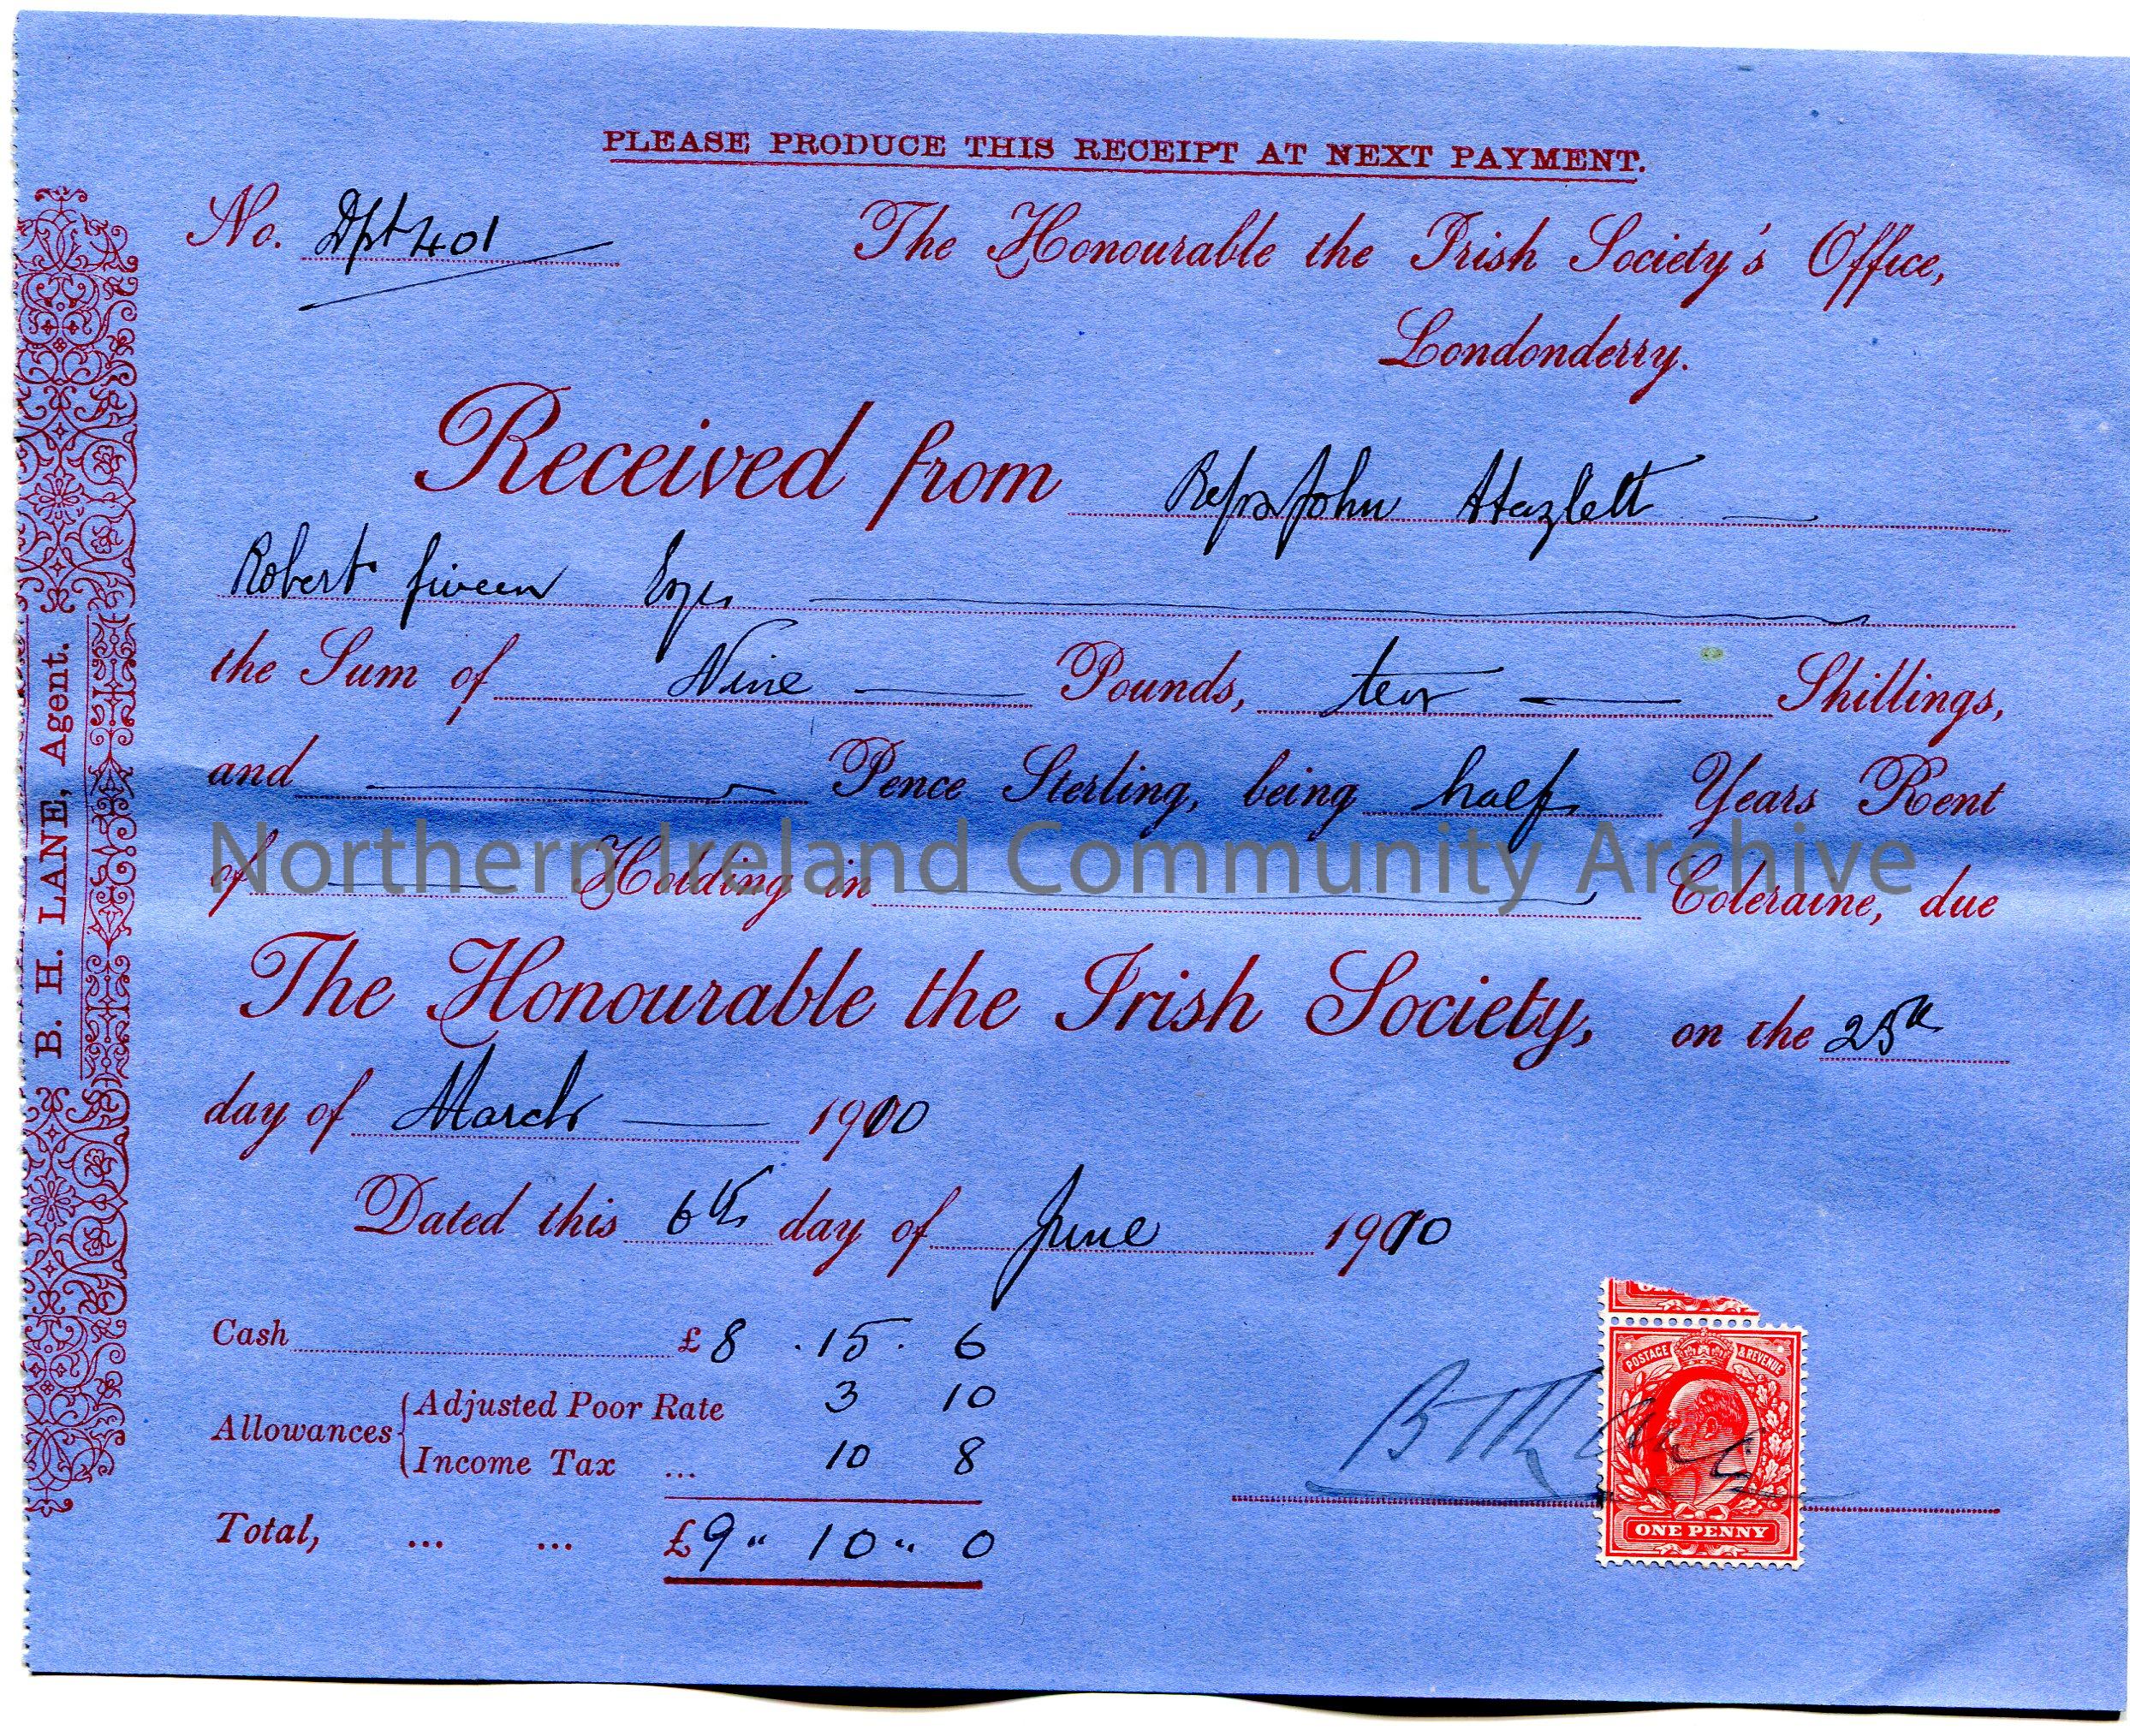 PLEASE PRODUCE THIS RECEIPT AT NEXT PAYMENT.
No. Dpt 401
The Honourable the Irish Society's Office,
Londonderry.
Received from Reps John Hazlett
Robert Given Exrs
the Sum of Nine Pounds, ten Shillings,
and Pence Sterling, being half Years Rent
of Holding in Coleraine, due
The Honourable the Irish Society, on the 25th
day of March 1910
Dated this 6th day of June 1910
Cash £ 8 . 15 . 6
Allowances Adjusted Poor Rate 3 10
Income Tax ... 10 8
Total, ... ... £9 " 10 " 0
B. H. LANE, Agent.
POSTAGE & REVENUE
ONE PENNY
Northern Ireland Community Archive